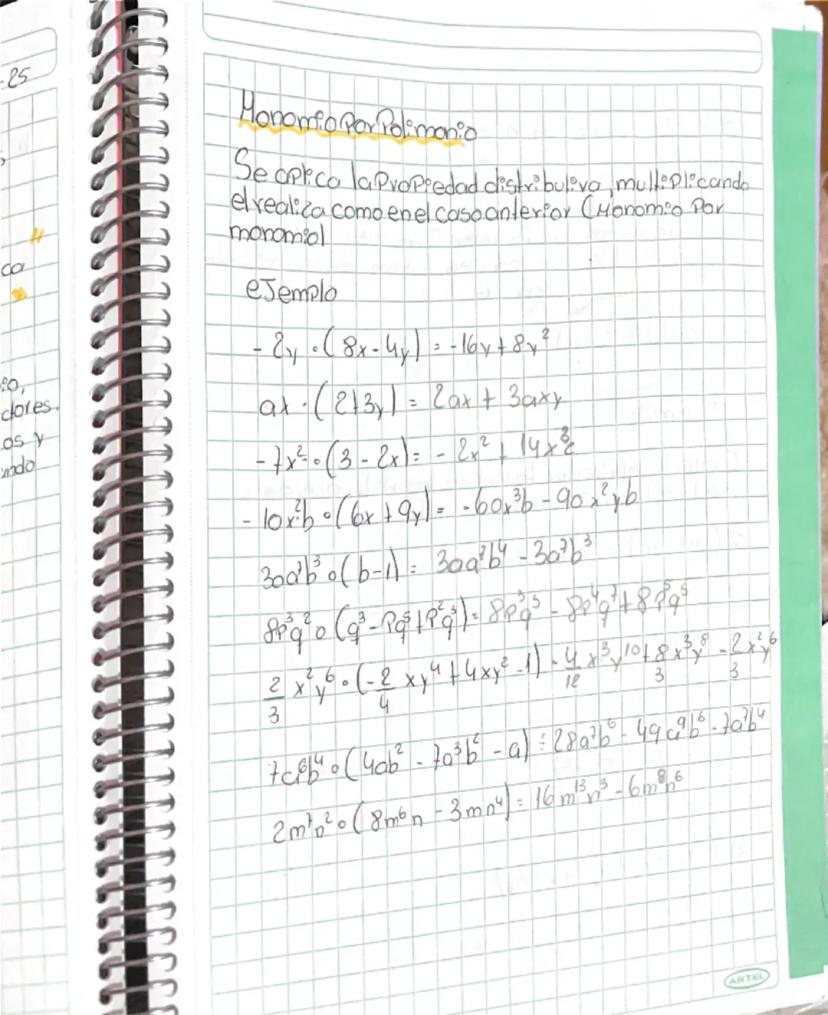 -25
ca
clores.
os y
ando
Monomio Por Polimonio
Se aplica la Propiedad distributiva, multiplicando
el realiza como en el caso anterior (Monomio Por
monomio)
eJemplo
- 2y · (8x - 4y) = -16y + 8y²
ax · (2+3y) = 2ax + 3axy
-7x² · (3 - 2x) = - 2x² + 14x³
- 10x²b · (6x + 9y) = -60x³b - 90x²yb
30a²b³ · (b-1) = 30a²b⁴ - 30a²b³
8p³q² · (q³ - pq⁵ + p²q³) = 8p³q⁵ - 8p⁴q⁷ + 8p⁵q⁵
2/3 x²y⁶ · (-2/4 xy⁴ + 4xy² - 1) = 4/12 x³y¹⁰ + 8/3 x³y⁸ - 2/3 x²y⁶
7a⁶b⁴ · (4ab² - 7a³b² - a) = 28a⁷b⁶ - 49a⁹b⁶ - 7a⁷b⁴
2m⁷n² · (8m⁶n - 3mn⁴) = 16m¹³n³ - 6m⁸n⁶
ARTEL